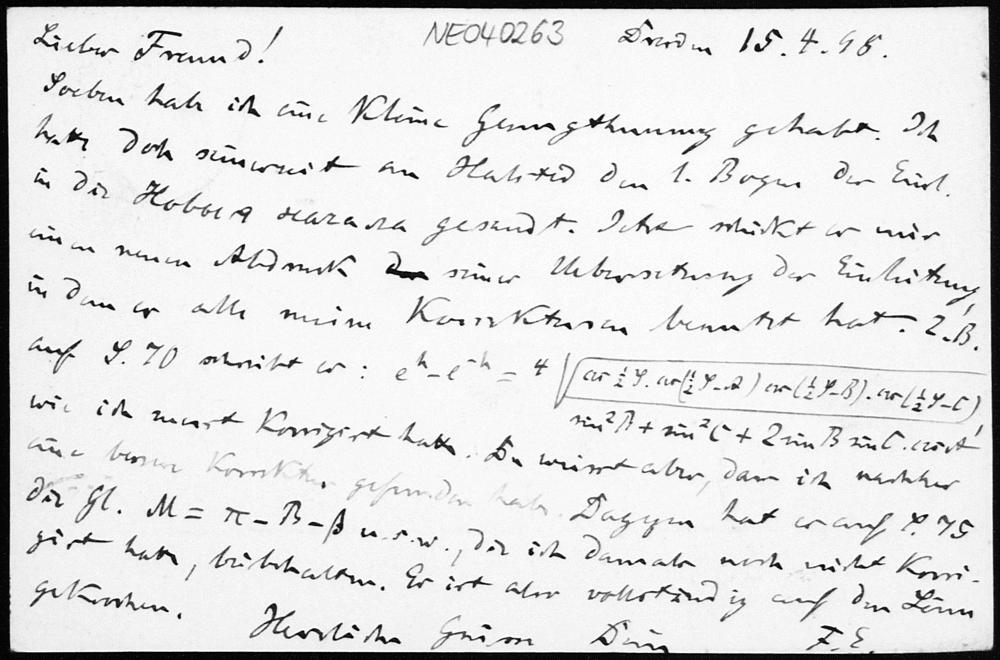 NE040263
Lieber Freund! Dresden 15.4.98.
Soeben habe ich eine kleine Genugthuung gehabt. Ich
hatte doch seinerzeit an Halsted den 1. Bogen der Einl.
in die Новыя начала gesandt. Jetzt schickt er mir
einen neuen Abdruck seiner Uebersetzung der Einleitung,
in dem er alle meine Korrekturen benutzt hat. Z.B.
auf S. 70 schreibt er: e^h - e^-h = 4 √(cos ½S. cos(½S-A) cos(½S-B). cos(½S-C)) / sin²B + sin²C + 2 sin B sin C. cos A!
wie ich zuerst korrigirt hatte. Du weisst aber, dass ich nachher
eine bessere Korrektur gefunden habe. Dagegen hat er auf S. 75
die Gl. M = π - B - β u.s.w., die ich damals noch nicht korri-
girt hatte, beibehalten. Er ist also vollständig auf den Leim
gekrochen.
Herzliche Grüsse Dein F.E.